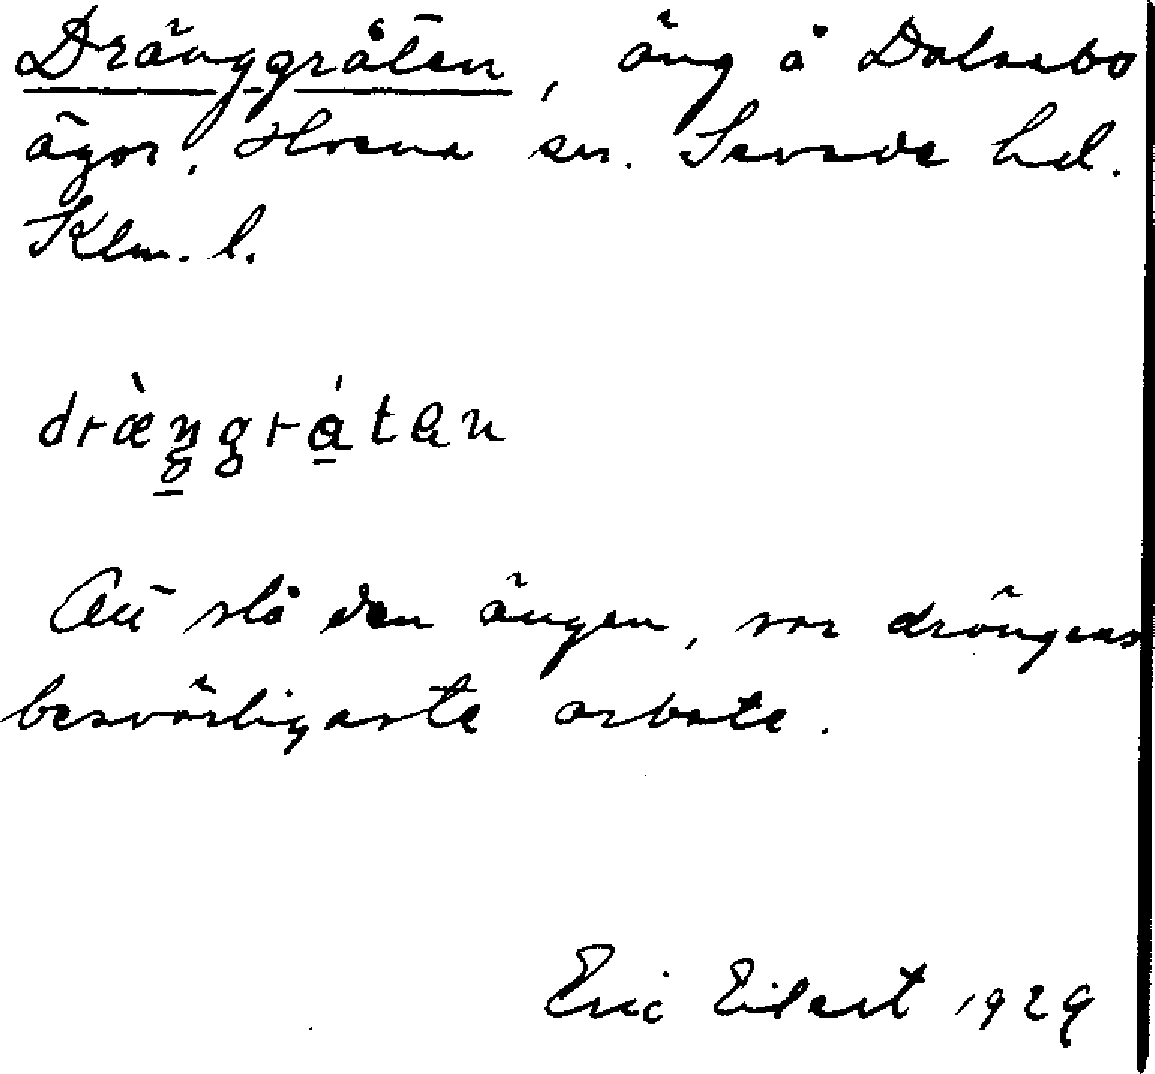 Dränggråten, äng å Dalsebo
ägor, sn. Sevede hd.
Klm. l.
drængråtən
Att slå den ängen, var drängens
besvärligaste arbete.
Eric Eilert 1929